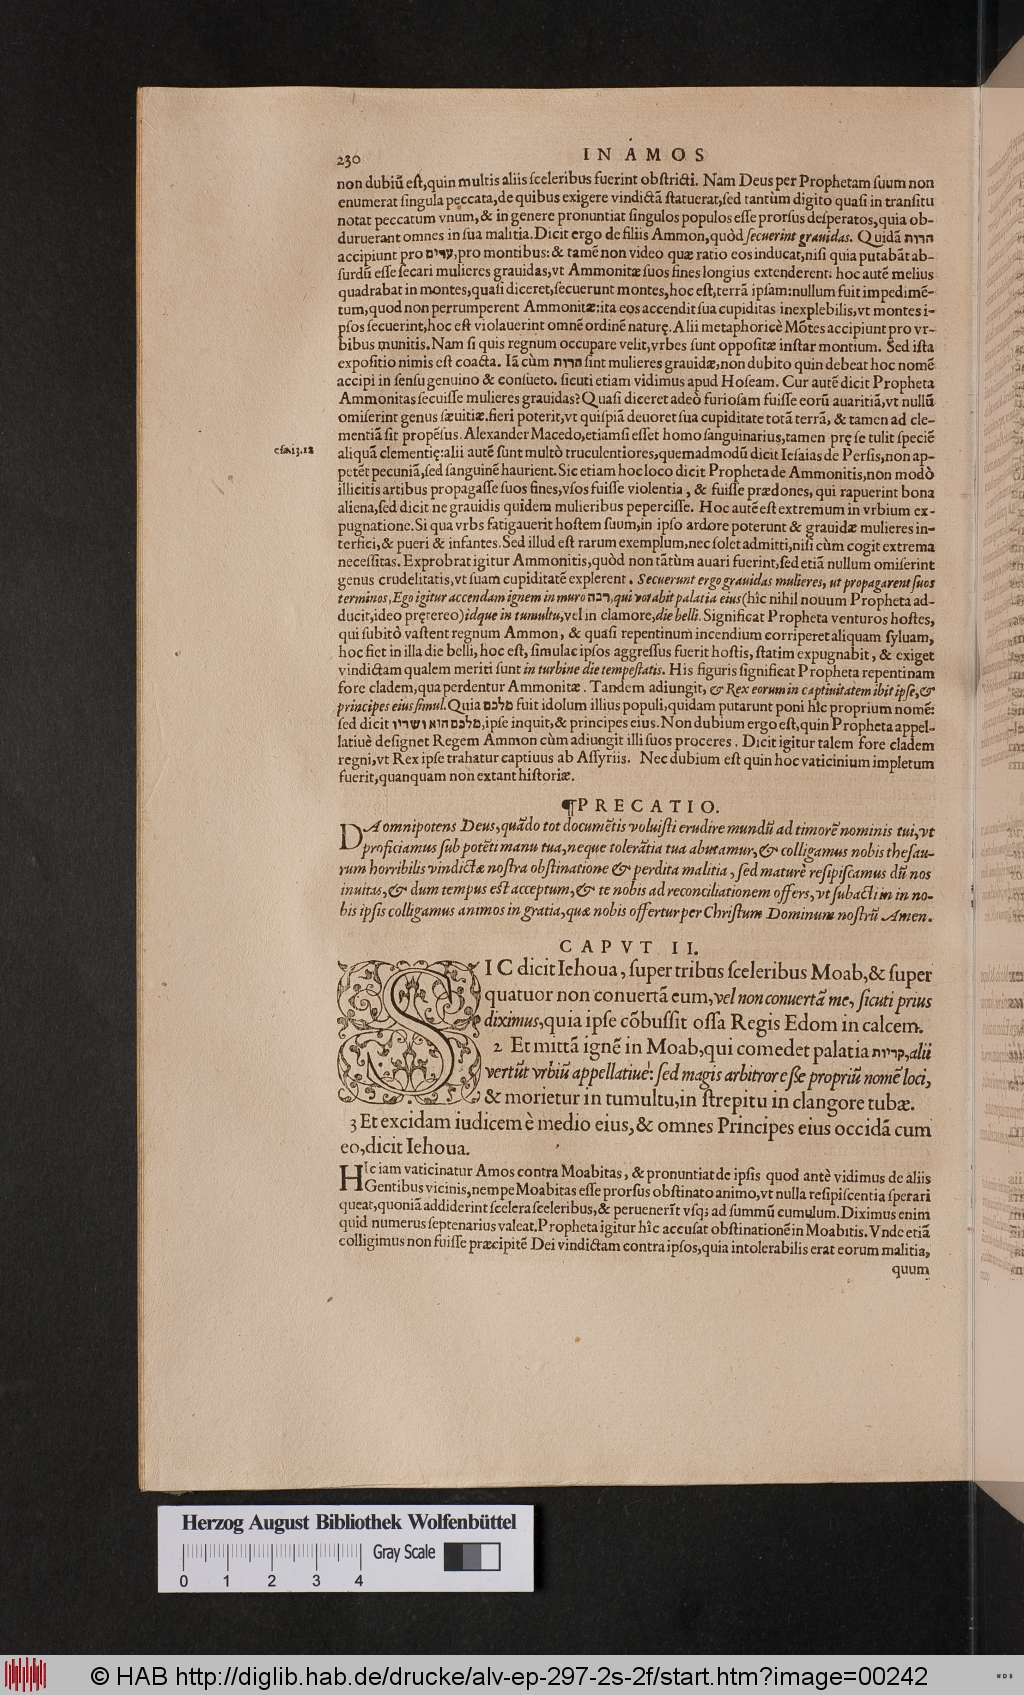 230 IN AMOS
non dubiũ eſt,quin multis aliis ſceleribus fuerint obſtricti. Nam Deus per Prophetam ſuum non
enumerat ſingula peccata,de quibus exigere vindictã ſtatuerat,ſed tantùm digito quaſi in tranſitu
notat peccatum vnum,& in genere pronuntiat ſingulos populos eſſe prorſus deſperatos,quia ob-
duruerant omnes in ſua malitia. Dicit ergo de filiis Ammon,quòd ſecuerint grauidas. Quidã הרות
accipiunt pro ערים,pro montibus:& tamẽ non video quæ ratio eos inducat,niſi quia putabãt ab-
ſurdũ eſſe ſecari mulieres grauidas,vt Ammonitæ ſuos fines longius extenderent: hoc autẽ melius
quadrabat in montes,quaſi diceret,ſecuerunt montes,hoc eſt,terrã ipſam:nullum fuit impedimẽ-
tum,quod non perrumperent Ammonitæ:ita eos accendit ſua cupiditas inexplebilis,vt montes i-
pſos ſecuerint,hoc eſt violauerint omnẽ ordinẽ naturę. Alii metaphoricè Mõtes accipiunt pro vr-
bibus munitis. Nam ſi quis regnum occupare velit,vrbes ſunt oppoſitæ inſtar montium. Sed iſta
expoſitio nimis eſt coacta. Iã cùm הרות ſint mulieres grauidæ,non dubito quin debeat hoc nomẽ
accipi in ſenſu genuino & conſueto. ſicuti etiam vidimus apud Hoſeam. Cur autẽ dicit Propheta
Ammonitas ſecuiſſe mulieres grauidas? Quaſi diceret adeò furioſam fuiſſe eorũ auaritiã,vt nullũ
omiſerint genus ſæuitiæ.fieri poterit,vt quiſpiã deuoret ſua cupiditate totã terrã, & tamen ad cle-
mentiã ſit propẽſus. Alexander Macedo,etiamſi eſſet homo ſanguinarius,tamen prę ſe tulit ſpeciẽ
eſa.13.18
aliquã clementię:alii autẽ ſunt multò truculentiores,quemadmodũ dicit Ieſaias de Perſis,non ap-
petẽt pecuniã,ſed ſanguinẽ haurient. Sic etiam hoc loco dicit Propheta de Ammonitis,non modò
illicitis artibus propagaſſe ſuos fines,vſos fuiſſe violentia, & fuiſſe prædones, qui rapuerint bona
aliena,ſed dicit ne grauidis quidem mulieribus peperciſſe. Hoc autẽ eſt extremum in vrbium ex-
pugnatione. Si qua vrbs fatigauerit hoſtem ſuum,in ipſo ardore poterunt & grauidæ mulieres in-
terfici,& pueri & infantes. Sed illud eſt rarum exemplum,nec ſolet admitti,niſi cùm cogit extrema
neceſſitas. Exprobrat igitur Ammonitis,quòd non tãtùm auari fuerint,ſed etiã nullum omiſerint
genus crudelitatis,vt ſuam cupiditatẽ explerent. Secuerunt ergo grauidas mulieres, ut propagarent ſuos
terminos, Ego igitur accendam ignem in muro רבה,qui vorabit palatia eius(hîc nihil nouum Propheta ad-
ducit,ideo pręrereo)idque in tumultu,vel in clamore,die belli. Significat Propheta venturos hoſtes,
qui ſubitò vaſtent regnum Ammon, & quaſi repentinum incendium corriperet aliquam ſyluam,
hoc fiet in illa die belli,hoc eſt, ſimulac ipſos aggreſſus fuerit hoſtis, ſtatim expugnabit, & exiget
vindictam qualem meriti ſunt in turbine die tempeſtatis. His figuris ſignificat Propheta repentinam
fore cladem,qua perdentur Ammonitæ. Tandem adiungit, & Rex eorum in captiuitatem ibit ipſe,&
principes eius ſimul. Quia מלכם fuit idolum illius populi,quidam putarunt poni hîc proprium nomẽ:
ſed dicit מלכם הוא ושריו,ipſe inquit,& principes eius. Non dubium ergo eſt,quin Propheta appel-
latiuè deſignet Regem Ammon cùm adiungit illi ſuos proceres. Dicit igitur talem fore cladem
regni,vt Rex ipſe trahatur captiuus ab Aſſyriis. Nec dubium eſt quin hoc vaticinium impletum
fuerit,quanquam non extant hiſtoriæ.
¶PRECATIO.
DA omnipotens Deus,quãdo tot documẽtis voluiſti erudire mundũ ad timorẽ nominis tui,vt
proficiamus ſub potẽti manu tua,neque tolerãtia tua abutamur,& colligamus nobis theſau-
rum horribilis vindictæ noſtra obſtinatione & perdita malitia, ſed maturè reſipiſcamus dũ nos
inuitas,& dum tempus eſt acceptum,& te nobis ad reconciliationem offers,vt ſubacti in in no-
bis ipſis colligamus animos in gratia,quæ nobis offertur per Chriſtum Dominum noſtrũ Amen.
CAPVT II.
SIC dicit Iehoua, ſuper tribus ſceleribus Moab,& ſuper
quatuor non conuertã eum,vel non conuertã me, ſicuti prius
diximus,quia ipſe cõbuſſit oſſa Regis Edom in calcem.
2 Et mittã ignẽ in Moab,qui comedet palatia קריות,alii
vertũt vrbiũ appellatiuè: ſed magis arbitror eſſe propriũ nomẽ loci,
& morietur in tumultu,in ſtrepitu in clangore tubæ.
3 Et excidam iudicem è medio eius,& omnes Principes eius occidã cum
eo,dicit Iehoua.
HIc iam vaticinatur Amos contra Moabitas, & pronuntiat de ipſis quod antè vidimus de aliis
Gentibus vicinis,nempe Moabitas eſſe prorſus obſtinato animo,vt nulla reſipiſcentia ſperari
queat,quoniã addiderint ſcelera ſceleribus,& peruenerĩt vſq; ad ſummũ cumulum. Diximus enim
quid numerus ſeptenarius valeat. Propheta igitur hîc accuſat obſtinationẽ in Moabitis. Vnde etiã
colligimus non fuiſſe præcipitẽ Dei vindictam contra ipſos,quia intolerabilis erat eorum malitia,
quum
Herzog August Bibliothek Wolfenbüttel
Gray Scale
0 1 2 3 4
© HAB http://diglib.hab.de/drucke/alv-ep-297-2s-2f/start.htm?image=00242